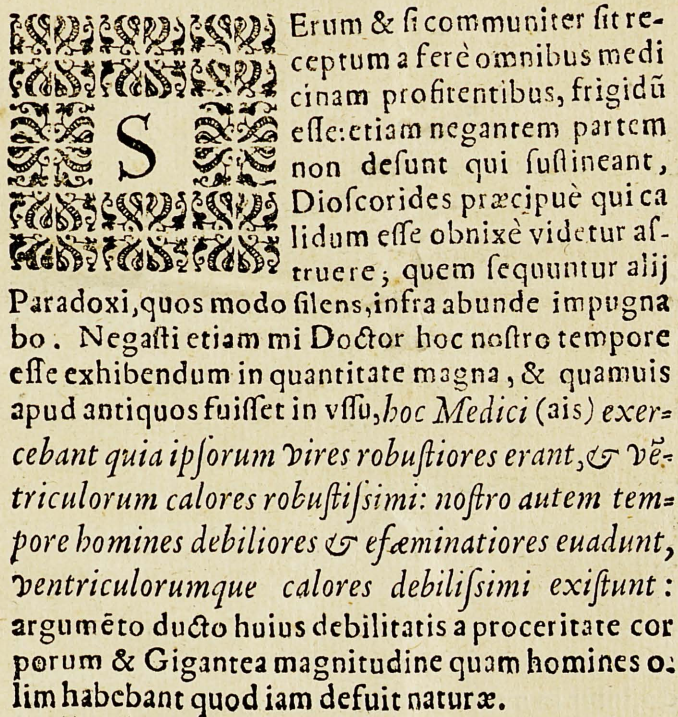 SErum & ſi communiter ſit re-
ceptum a ferè omnibus medi
cinam profitentibus, frigidũ
eſſe:etiam negantem partem
non deſunt qui ſuſtineant,
Dioſcorides præcipuè qui ca
lidum eſſe obnixè videtur aſ-
truere; quem ſequuntur alij
Paradoxi,quos modo ſilens,infra abunde impugna
bo. Negaſti etiam mi Doctor hoc noſtro tempore
eſſe exhibendum in quantitate magna, & quamuis
apud antiquos fuiſſet in vſſu,hoc Medici (ais) exer=
cebant quia ipſorum vires robuſtiores erant,& vẽ-
triculorum calores robuſtiſsimi: noſtro autem tem=
pore homines debiliores & efæminatiores euadunt,
ventriculorumque calores debiliſsimi exiſtunt:
argumẽto ducto huius debilitatis a proceritate cor
porum & Gigantea magnitudine quam homines o-
lim habebant quod iam defuit naturæ.